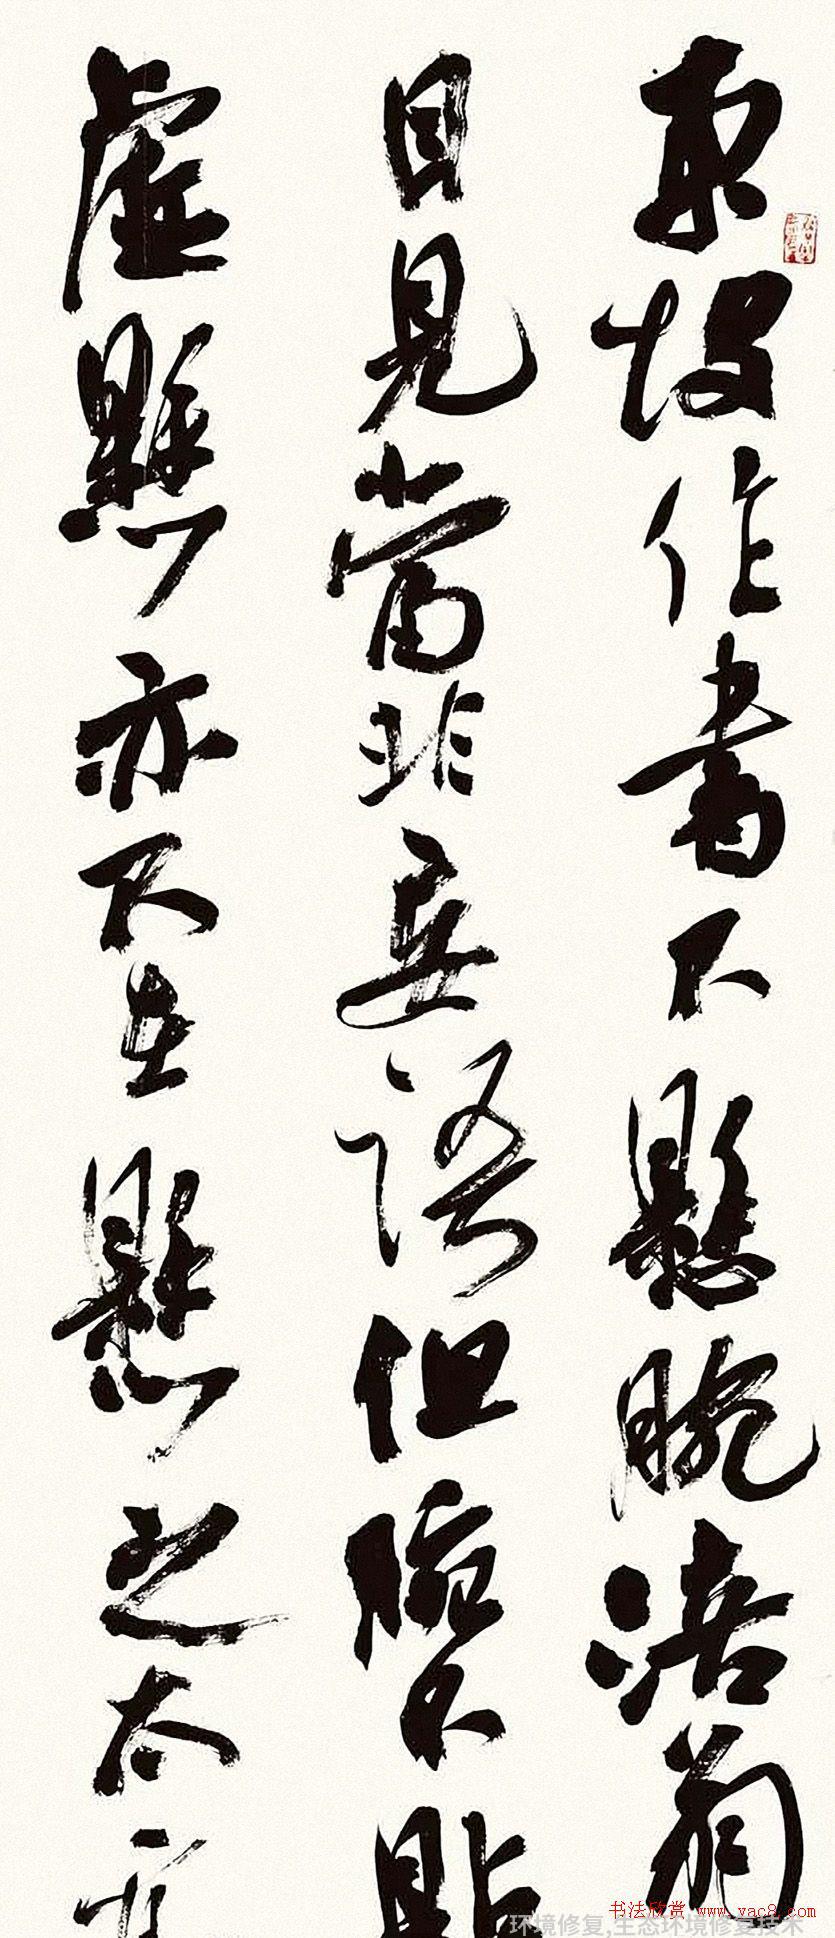 東坡作書不懸腕涪翁
目見當非妄語但腕不貼
虛懸亦不在懸之太
书法欣赏 www.yac8.com
环境修复,生态环境修复技术